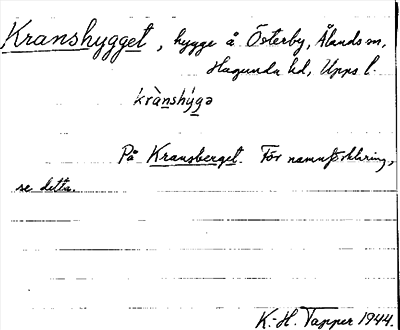 Kranshygget, hygge å Österby, Ålands sn,
Hagunda hd, Upps l.
krànshýgə
På Kransberget. För namnförklaring,
se detta.
K.-H. Tapper 1944.